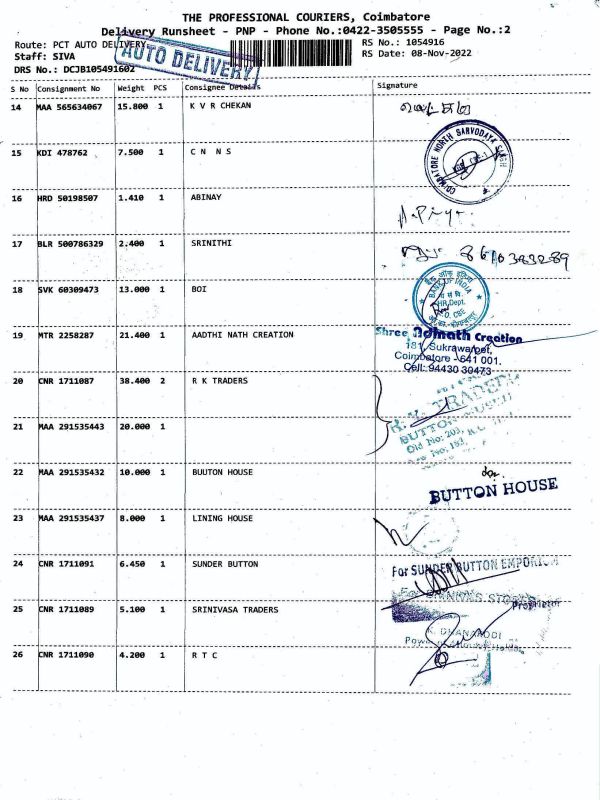 THE PROFESSIONAL COURIERS, Coimbatore
Delivery Runsheet - PNP - Phone No.:0422-3505555 - Page No.:2
Route: PCT AUTO DELIVERY
RS No.: 1054916
Staff: SIVA
RS Date: 08-Nov-2022
DRS No.: DCJB105491602
AUTO DELIVERY
S No Consignment No Weight PCS Consignee Details Signature
14 MAA 565634067 15.800 1 K V R CHEKAN
15 KDI 478762 7.500 1 C N N S
COIMBATORE NORTH SARVODAYA
16 HRD 50198507 1.410 1 ABINAY
17 BLR 500786329 2.400 1 SRINITHI
8610383289
18 SVK 60309473 13.000 1 BOI
BANK OF INDIA
HR Dept.
Z.O. CBE
19 MTR 2258287 21.400 1 AADTHI NATH CREATION
Shree Adinath Creation
181, Sukrawarpet,
Coimbatore - 641 001.
Cell: 94430 30473
20 CNR 1711087 38.400 2 R K TRADERS
R.K. TRADERS
BUTTON HOUSE
Old No: 203,
21 MAA 291535443 20.000 1
22 MAA 291535432 10.000 1 BUUTON HOUSE
for
BUTTON HOUSE
23 MAA 291535437 8.000 1 LINING HOUSE
24 CNR 1711091 6.450 1 SUNDER BUTTON
For SUNDER BUTTON EMPORIUM
25 CNR 1711089 5.100 1 SRINIVASA TRADERS
Proprietor
26 CNR 1711090 4.200 1 R T C